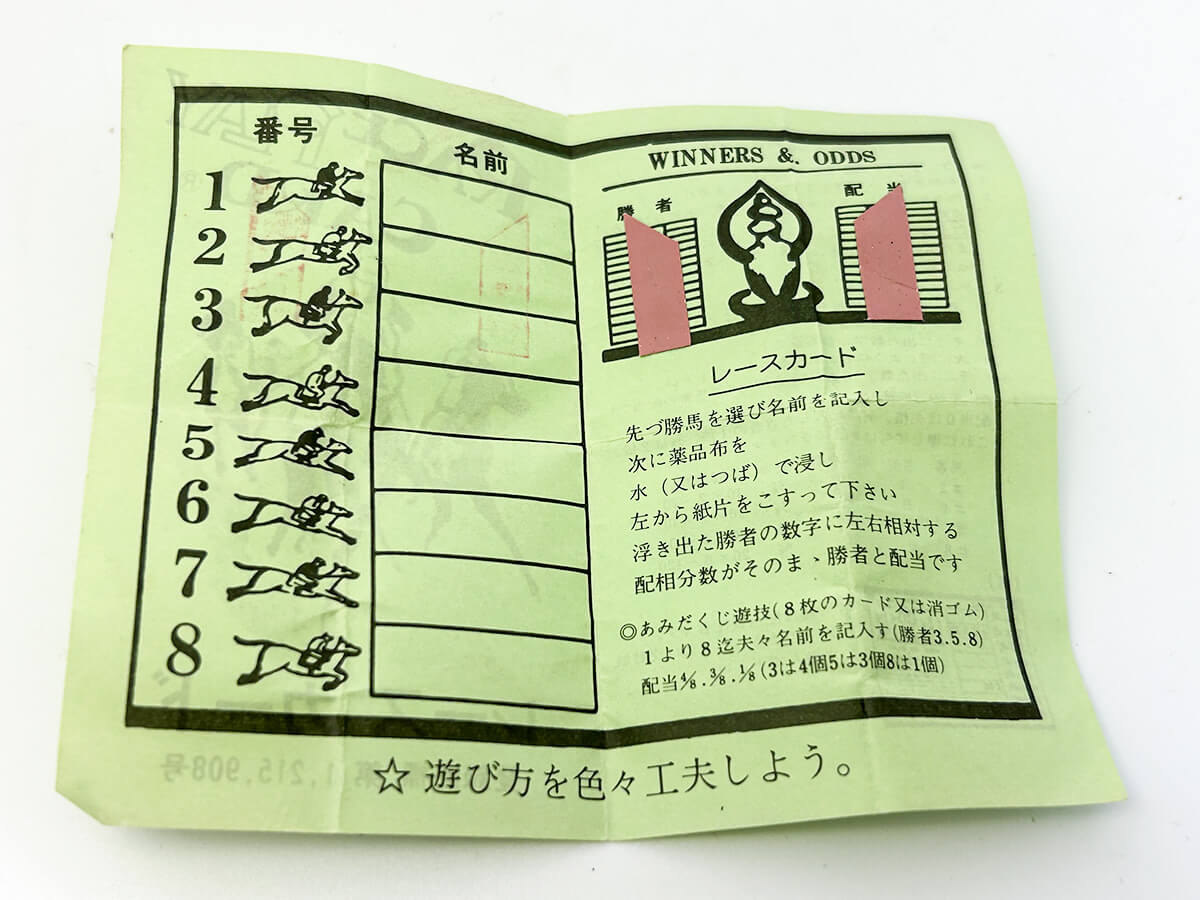 番号
名前
1
2
3
4
5
6
7
8
WINNERS & ODDS
勝者
配当
レースカード
先づ勝馬を選び名前を記入し
次に薬品布を
水（又はつば）で浸し
左から紙片をこすって下さい
浮き出た勝者の数字に左右相対する
配相分数がそのまゝ勝者と配当です
◎あみだくじ遊技(8枚のカード又は消ゴム)
1より8迄夫々名前を記入す(勝者3.5.8)
配当4/8.3/8.1/8(3は4個5は3個8は1個)
☆遊び方を色々工夫しよう。
1,215,908号